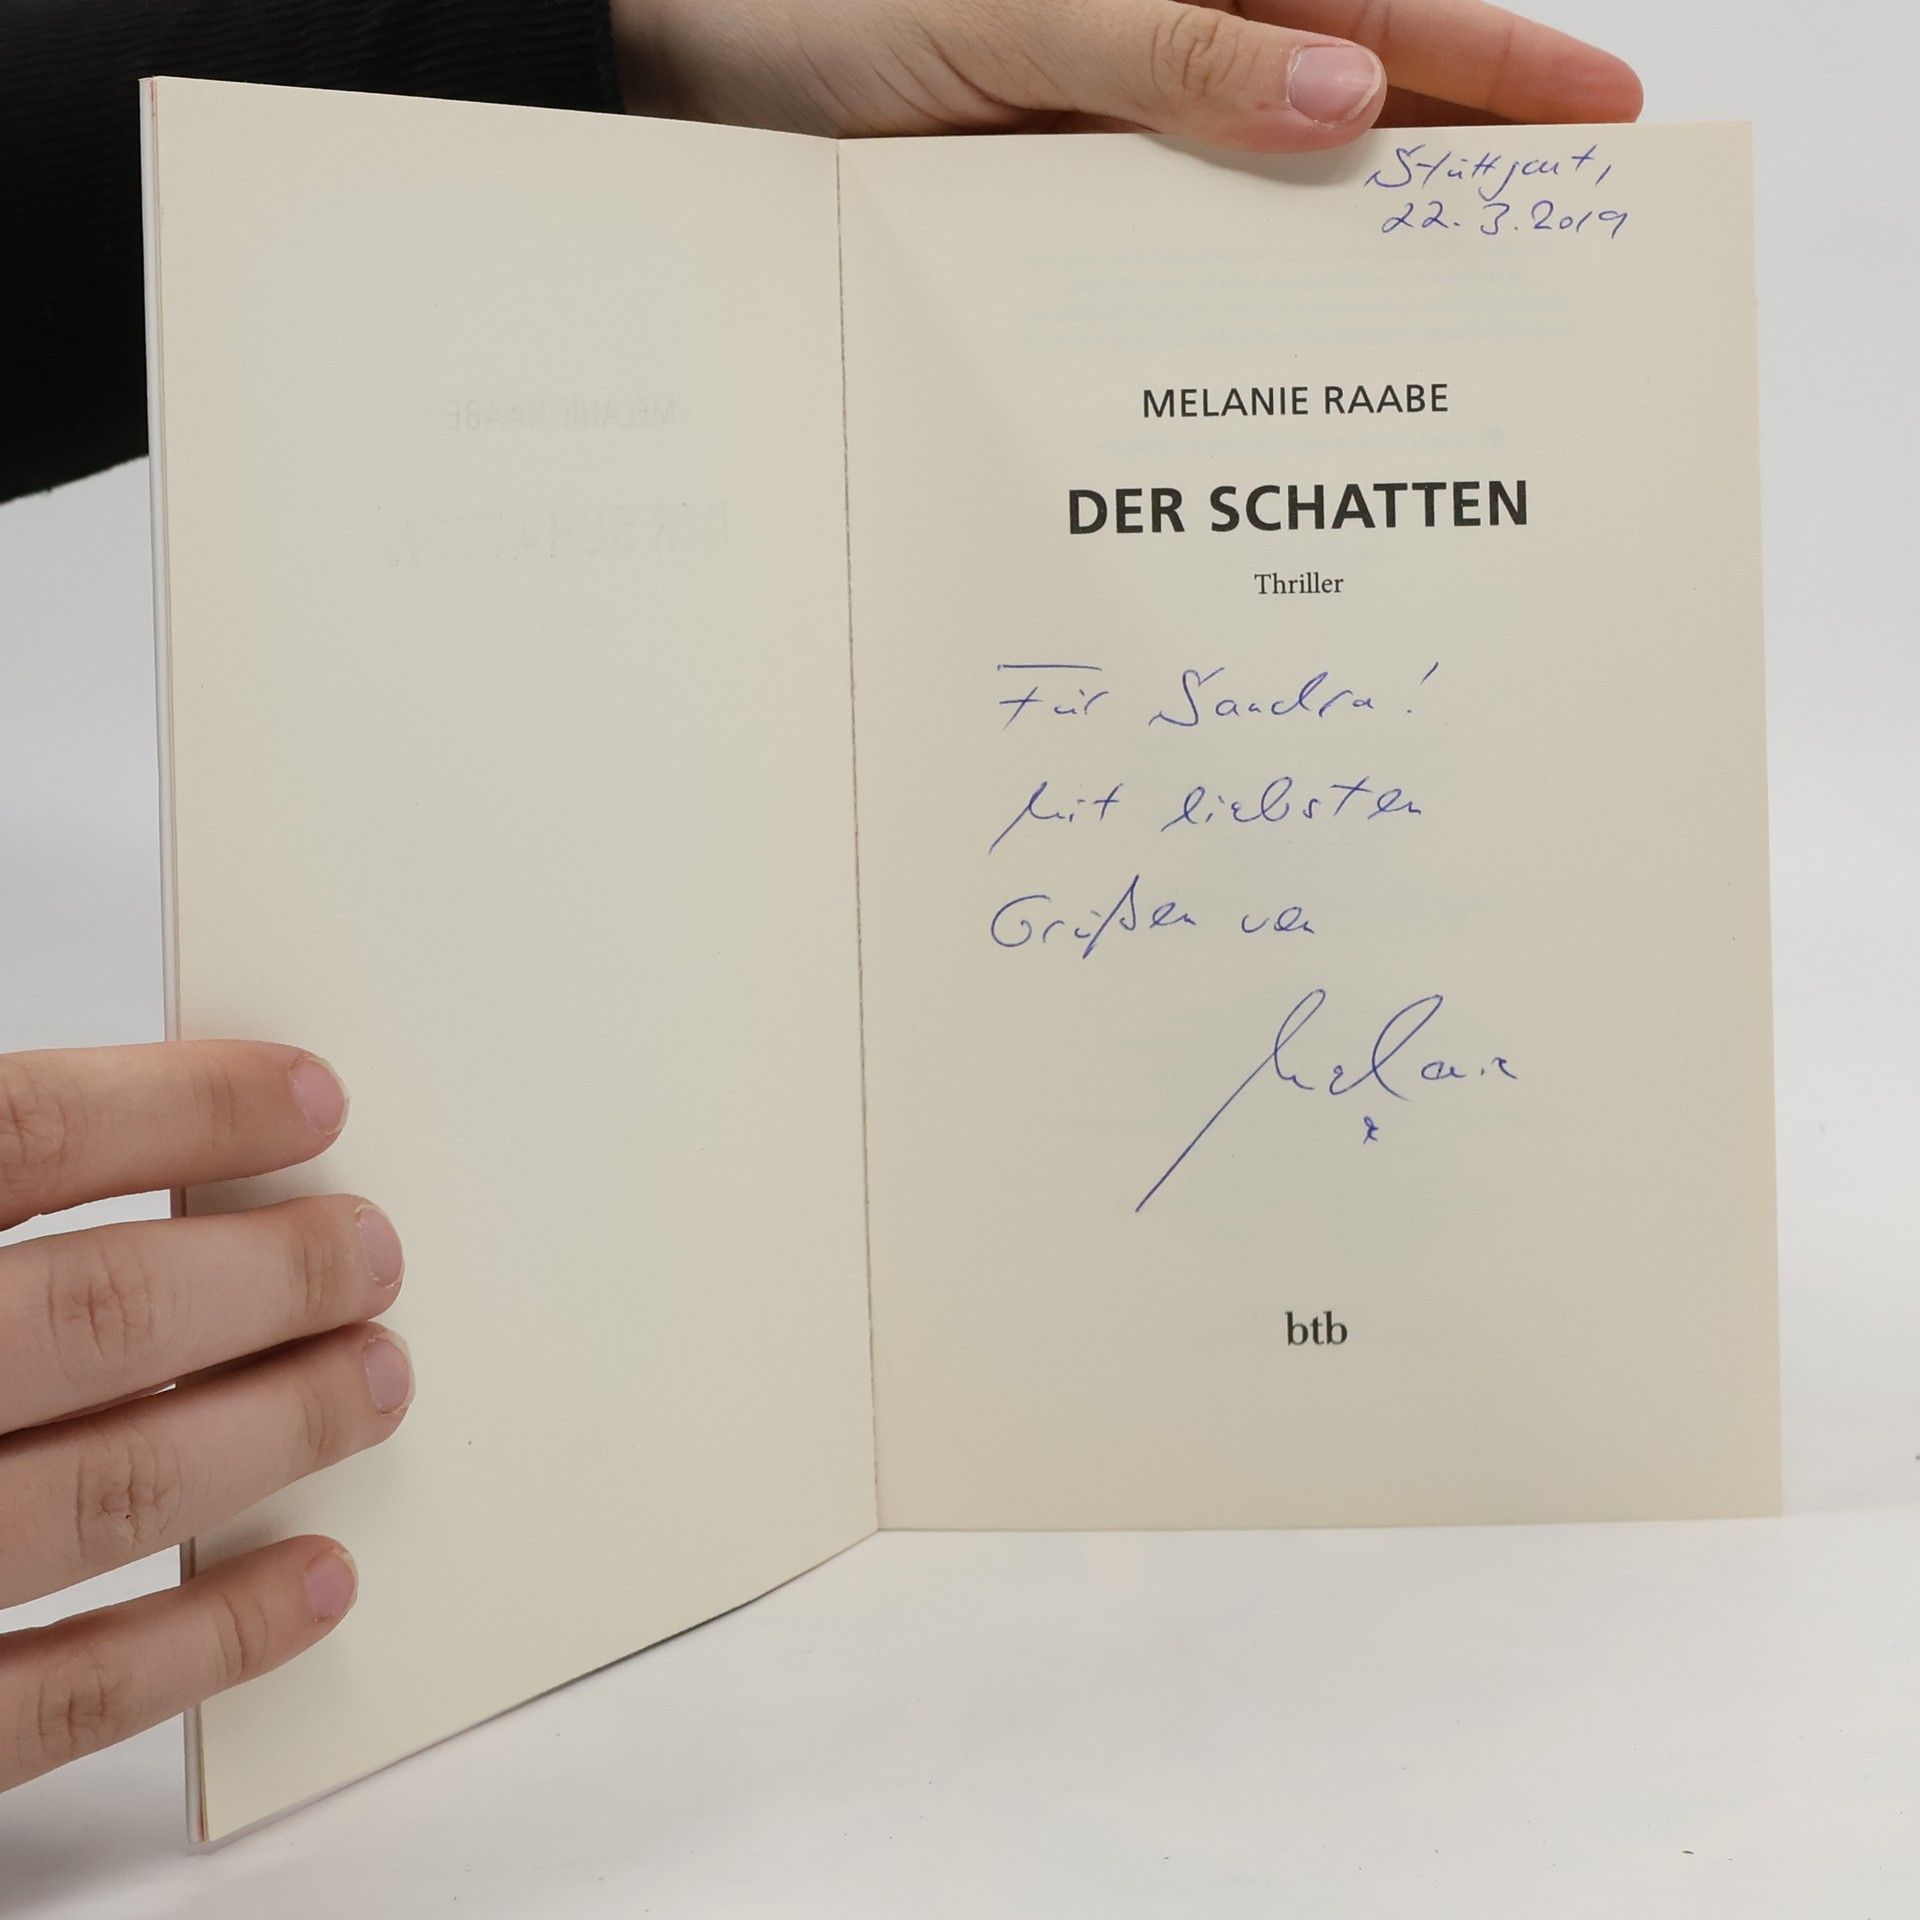 Stuttgart,
22.3.2019
MELANIE RAABE
DER SCHATTEN
Thriller
Für Sandra!
Mit liebsten
Grüßen von
Melanie
x
btb